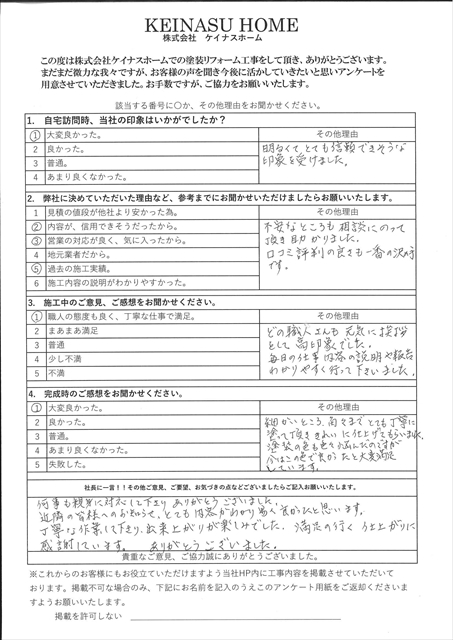 KEINASU HOME
株式会社 ケイナスホーム
この度は株式会社ケイナスホームでの塗装リフォーム工事をして頂き、ありがとうございます。
まだまだ微力な我々ですが、お客様の声を聞き今後に活かしていきたいと思いアンケートを
用意させていただきました。お手数ですが、ご協力をお願いいたします。
該当する番号に〇か、その他理由をお聞かせください。
1. 自宅訪問時、当社の印象はいかがでしたか？
① 大変良かった。
2 良かった。
3 普通。
4 あまり良くなかった。
その他理由
明るくて、とても信頼できそうな
印象を受けました。
2. 弊社に決めていただいた理由など、参考までにお聞かせいただけましたらお願いいたします。
1 見積の値段が他社より安かった為。
② 内容が、信用できそうだったから。
③ 営業の対応が良く、気に入ったから。
4 地元業者だから。
⑤ 過去の施工実績。
6 施工内容の説明がわかりやすかった。
その他理由
不安なところも相談にのって
頂き助かりました。
口コミ評判の良さも一番の決め手
です。
3. 施工中のご意見、ご感想をお聞かせください。
① 職人の態度も良く、丁寧な仕事で満足。
2 まあまあ満足
3 普通
4 少し不満
5 不満
その他理由
どの職人さんも元気に挨拶
をして高印象でした。
毎日の仕事内容の説明や報告
わかりやすく行って下さいました。
4. 完成時のご感想をお聞かせください。
① 大変良かった。
2 良かった。
3 普通。
4 あまり良くなかった。
5 失敗した。
その他理由
細かいところ、角々までとても丁寧に
塗って頂ききれいに仕上げてもらいました。
塗装の色も色々悩んだのですが
今はこの色で良かったと大変満足
しています。
社長に一言！！その他ご意見、ご要望、お気づきの点などございましたらご記入お願いいたします。
何事も親身に対応して下さりありがとうございました。
近隣の皆様へのお知らせも、とても内容がわかり易く良かったと思います。
丁寧な作業して下さり、出来上がりが楽しみでした。満足の行く仕上がりに
感謝しています。 ありがとうございました。
貴重なご意見、ご協力誠にありがとうございました。
※これからのお客様にもお役立ていただけますよう当社HP内に工事内容を掲載させていただいて
おります。掲載不可な場合のみ、下記にお名前を記入のうえこのアンケート用紙をご返却くださいま
すようお願いいたします。
掲載を許可しない